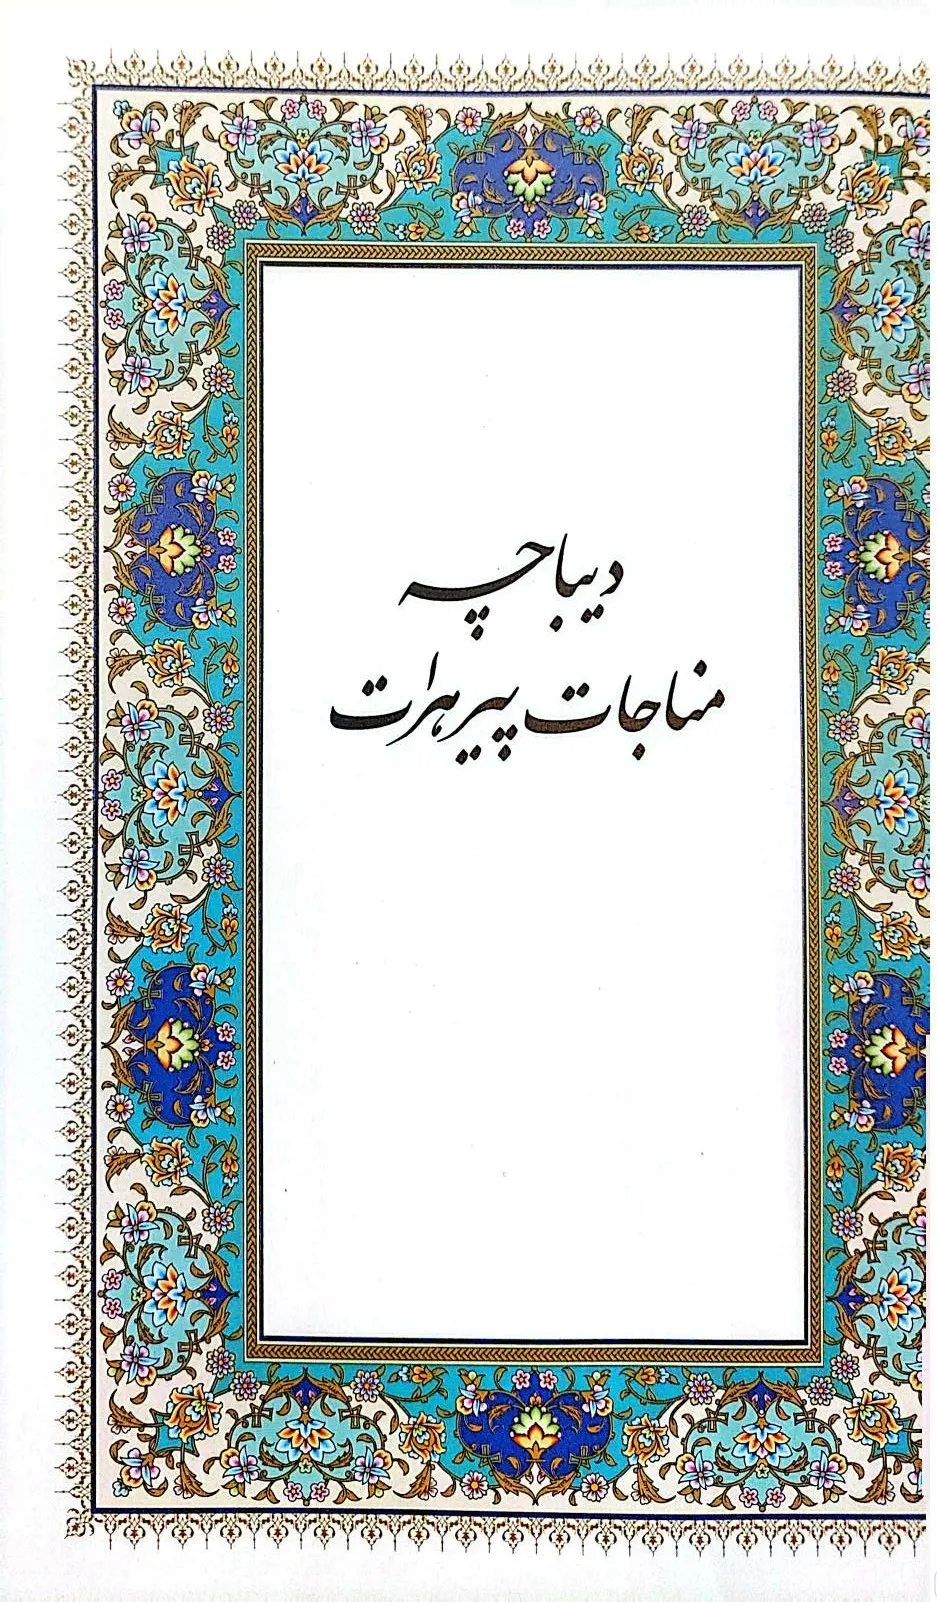 دیباچه
مناجات پیر هرات